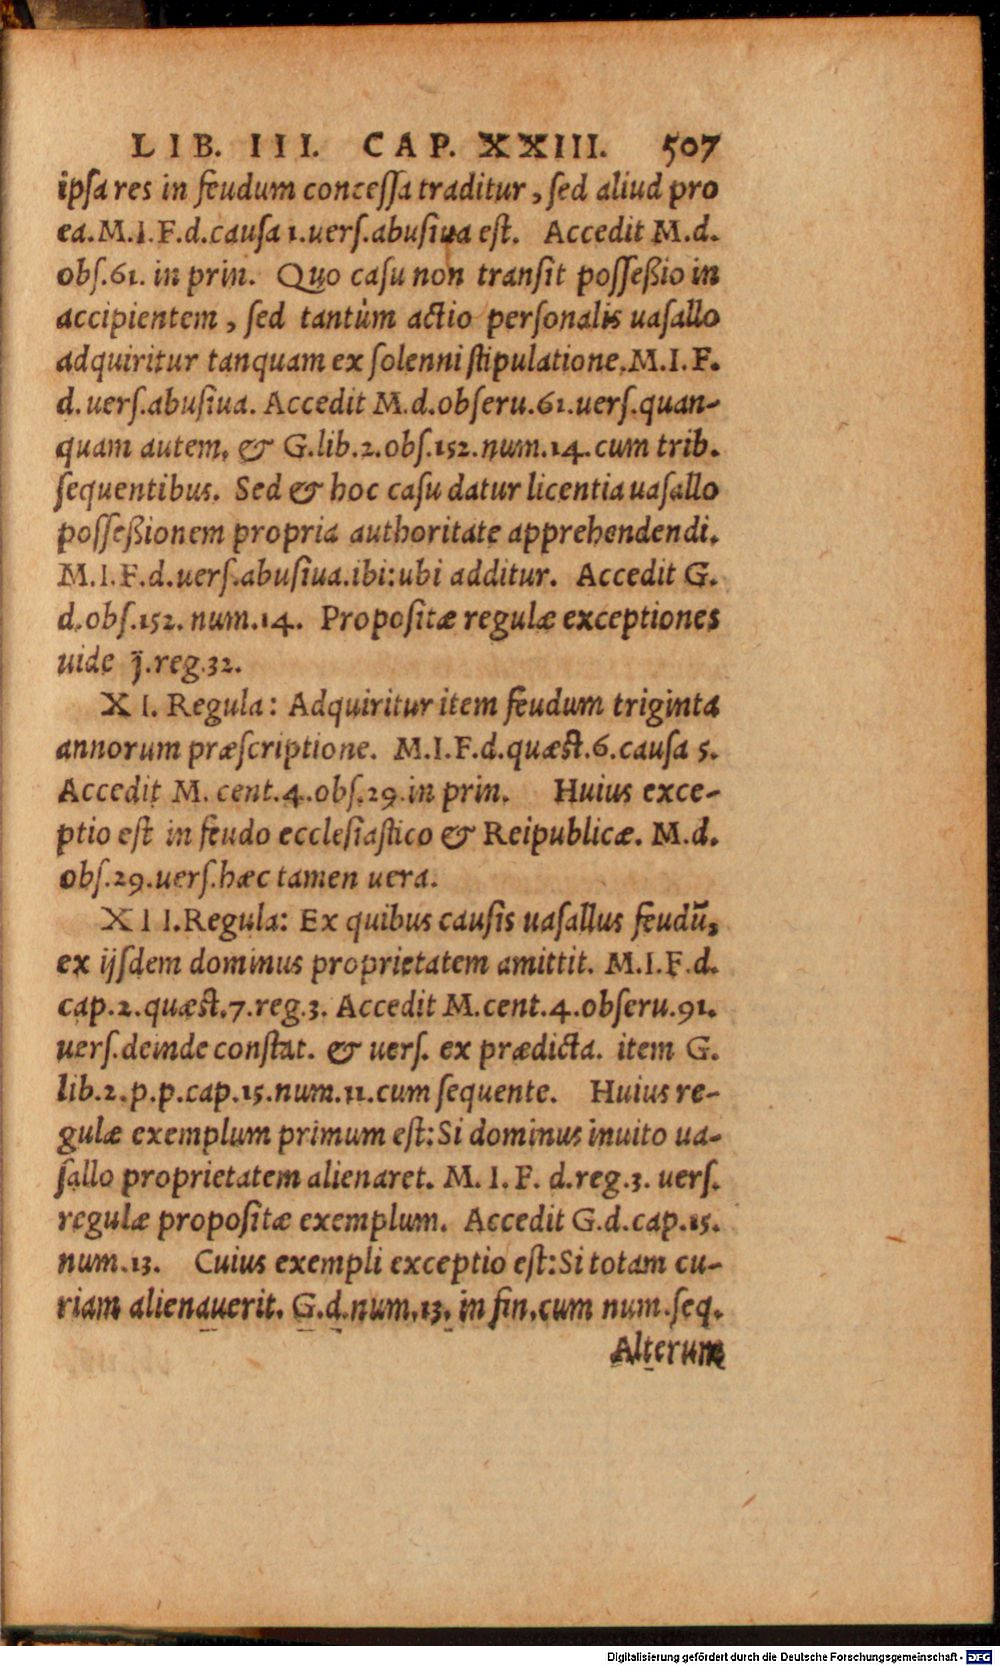 LIB. III. CAP. XXIII. 507
ipsa res in feudum concessa traditur, sed aliud pro
ea. M.I.F.d.causa 1.uers.abusiua est. Accedit M.d.
obs.61. in prin. Quo casu non transit posseßio in
accipientem, sed tantùm actio personalis uasallo
adquiritur tanquam ex solenni stipulatione. M.I.F.
d. uers.abusiua. Accedit M.d.obseru.61.uers.quan-
quam autem. & G.lib.2.obs.152.num.14.cum trib.
sequentibus. Sed & hoc casu datur licentia uasallo
possеßionem propria authoritate apprehendendi.
M.I.F.d.uers.abusiua.ibi:ubi additur. Accedit G.
d.obs.152. num.14. Propositæ regulæ exceptiones
uide j̄.reg.32.
XI. Regula: Adquiritur item feudum triginta
annorum præscriptione. M.I.F.d.quæst.6.causa 5.
Accedit M. cent.4.obs.29.in prin. Huius exce-
ptio est in feudo ecclesiastico & Reipublicæ. M.d.
obs.29.uers.hæc tamen uera.
XII.Regula: Ex quibus causis uasallus feudū,
ex ijsdem dominus proprietatem amittit. M.I.F.d.
cap.2.quæst.7.reg.3. Accedit M.cent.4.obseru.91.
uers.deinde constat. & uers. ex prædicta. item G.
lib.2.p.p.cap.15.num.11.cum sequente. Huius re-
gulæ exemplum primum est:Si dominus inuito ua-
sallo proprietatem alienaret. M. I. F. d.reg.3. uers.
regulæ propositæ exemplum. Accedit G.d.cap.15.
num.13. Cuius exempli exceptio est:Si totam cu-
riam alienauerit. G.d.num.13. in fin.cum num.seq.
Alterum
Digitalisierung gefördert durch die Deutsche Forschungsgemeinschaft - DFG